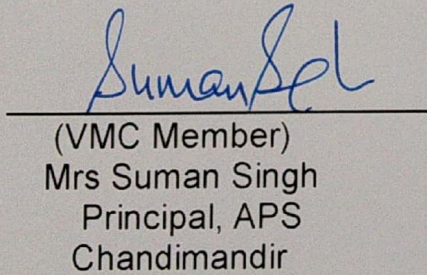 Suman Sgh
(VMC Member)
Mrs Suman Singh
Principal, APS
Chandimandir